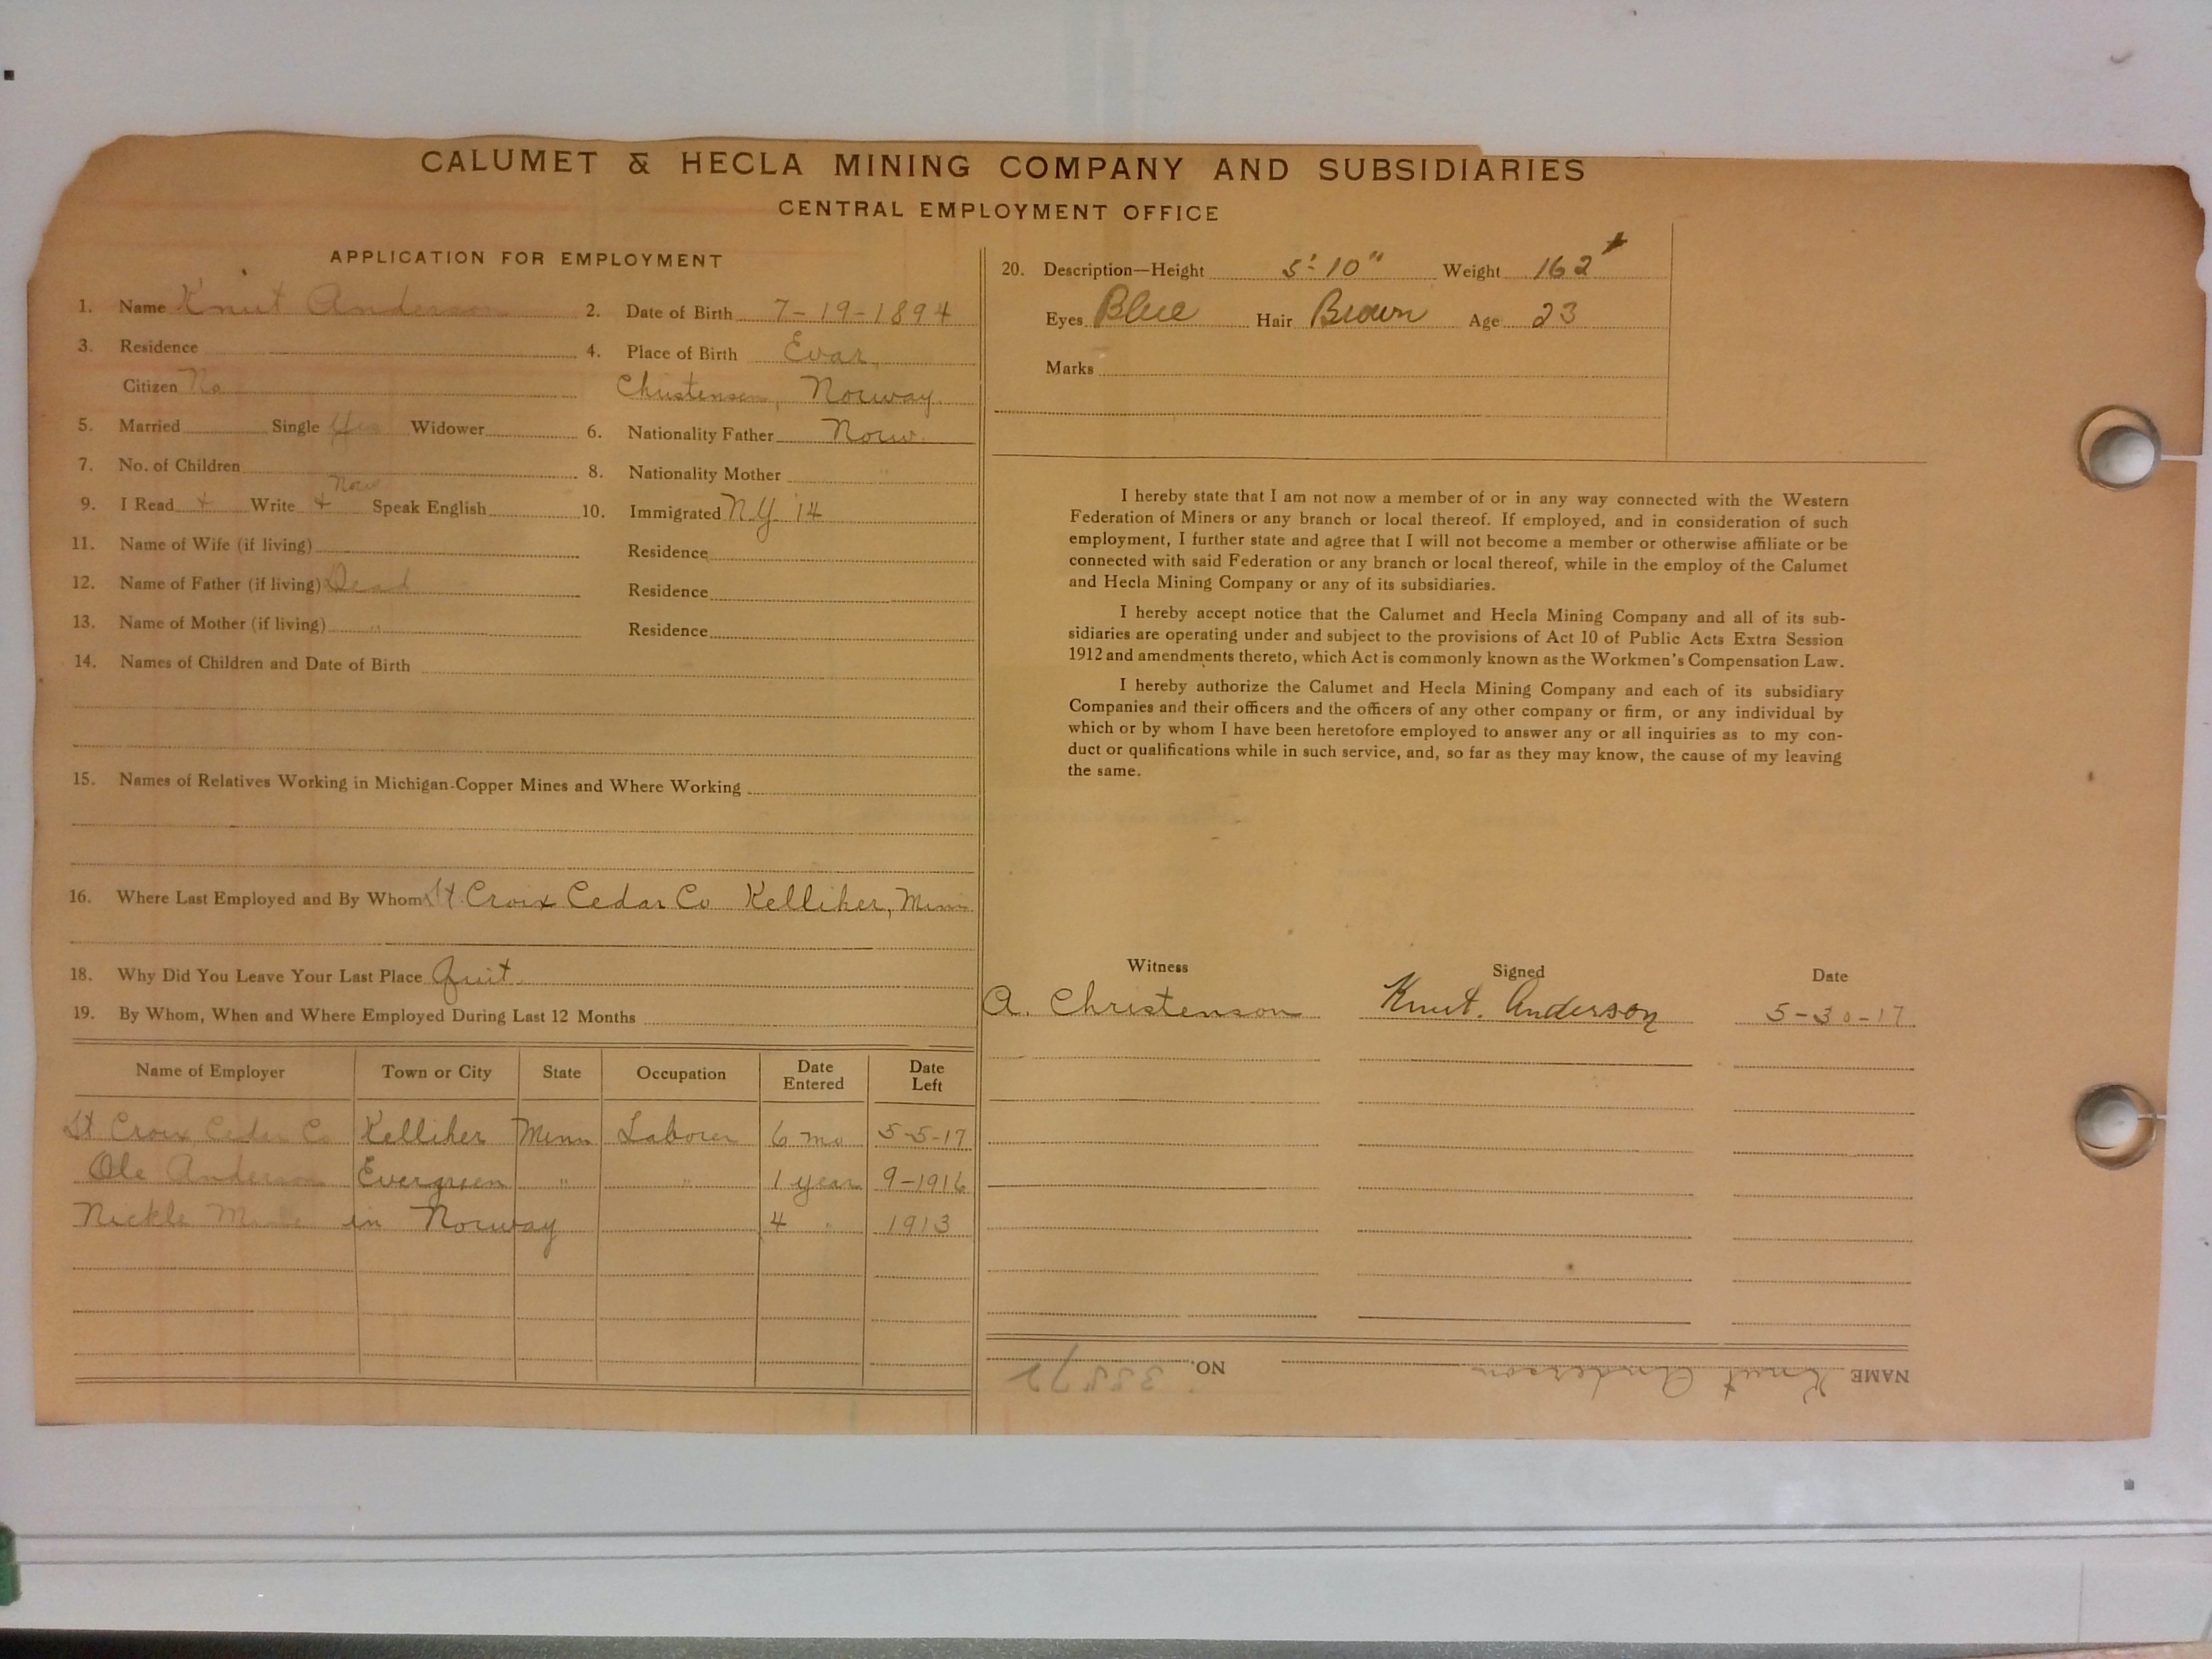 CALUMET & HECLA MINING COMPANY AND SUBSIDIARIES
CENTRAL EMPLOYMENT OFFICE
APPLICATION FOR EMPLOYMENT
1. Name Knut Anderson 2. Date of Birth 7-19-1894
3. Residence 4. Place of Birth Evar,
Citizen No Christensen, Norway
5. Married Single Yes Widower 6. Nationality Father Norw.
7. No. of Children 8. Nationality Mother "
Norw
9. I Read + Write + Speak English 10. Immigrated N.Y. '14
11. Name of Wife (if living) Residence
12. Name of Father (if living) Dead Residence
13. Name of Mother (if living) " Residence
14. Names of Children and Date of Birth
15. Names of Relatives Working in Michigan Copper Mines and Where Working
16. Where Last Employed and By Whom St Croix Cedar Co Kelliher, Minn
18. Why Did You Leave Your Last Place Quit
19. By Whom, When and Where Employed During Last 12 Months
Name of Employer Town or City State Occupation Date Entered Date Left
St Croix Cedar Co Kelliher Minn Laborer 6 mo 5-5-17
Ole Anderson Evergreen " " 1 year 9-1916
Nickle Mine in Norway 4 " 1913
20. Description—Height 5' 10" Weight 162
Eyes Blue Hair Brown Age 23
Marks
I hereby state that I am not now a member of or in any way connected with the Western
Federation of Miners or any branch or local thereof. If employed, and in consideration of such
employment, I further state and agree that I will not become a member or otherwise affiliate or be
connected with said Federation or any branch or local thereof, while in the employ of the Calumet
and Hecla Mining Company or any of its subsidiaries.
I hereby accept notice that the Calumet and Hecla Mining Company and all of its sub-
sidiaries are operating under and subject to the provisions of Act 10 of Public Acts Extra Session
1912 and amendments thereto, which Act is commonly known as the Workmen's Compensation Law.
I hereby authorize the Calumet and Hecla Mining Company and each of its subsidiary
Companies and their officers and the officers of any other company or firm, or any individual by
which or by whom I have been heretofore employed to answer any or all inquiries as to my con-
duct or qualifications while in such service, and, so far as they may know, the cause of my leaving
the same.
Witness Signed Date
A. Christenson Knut. Anderson 5-30-17
NAME Knut Anderson NO.